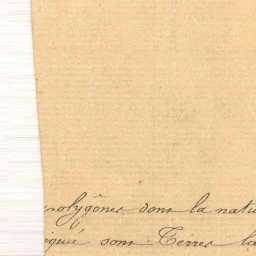 polygônes dont la natu
igué sont Terres la